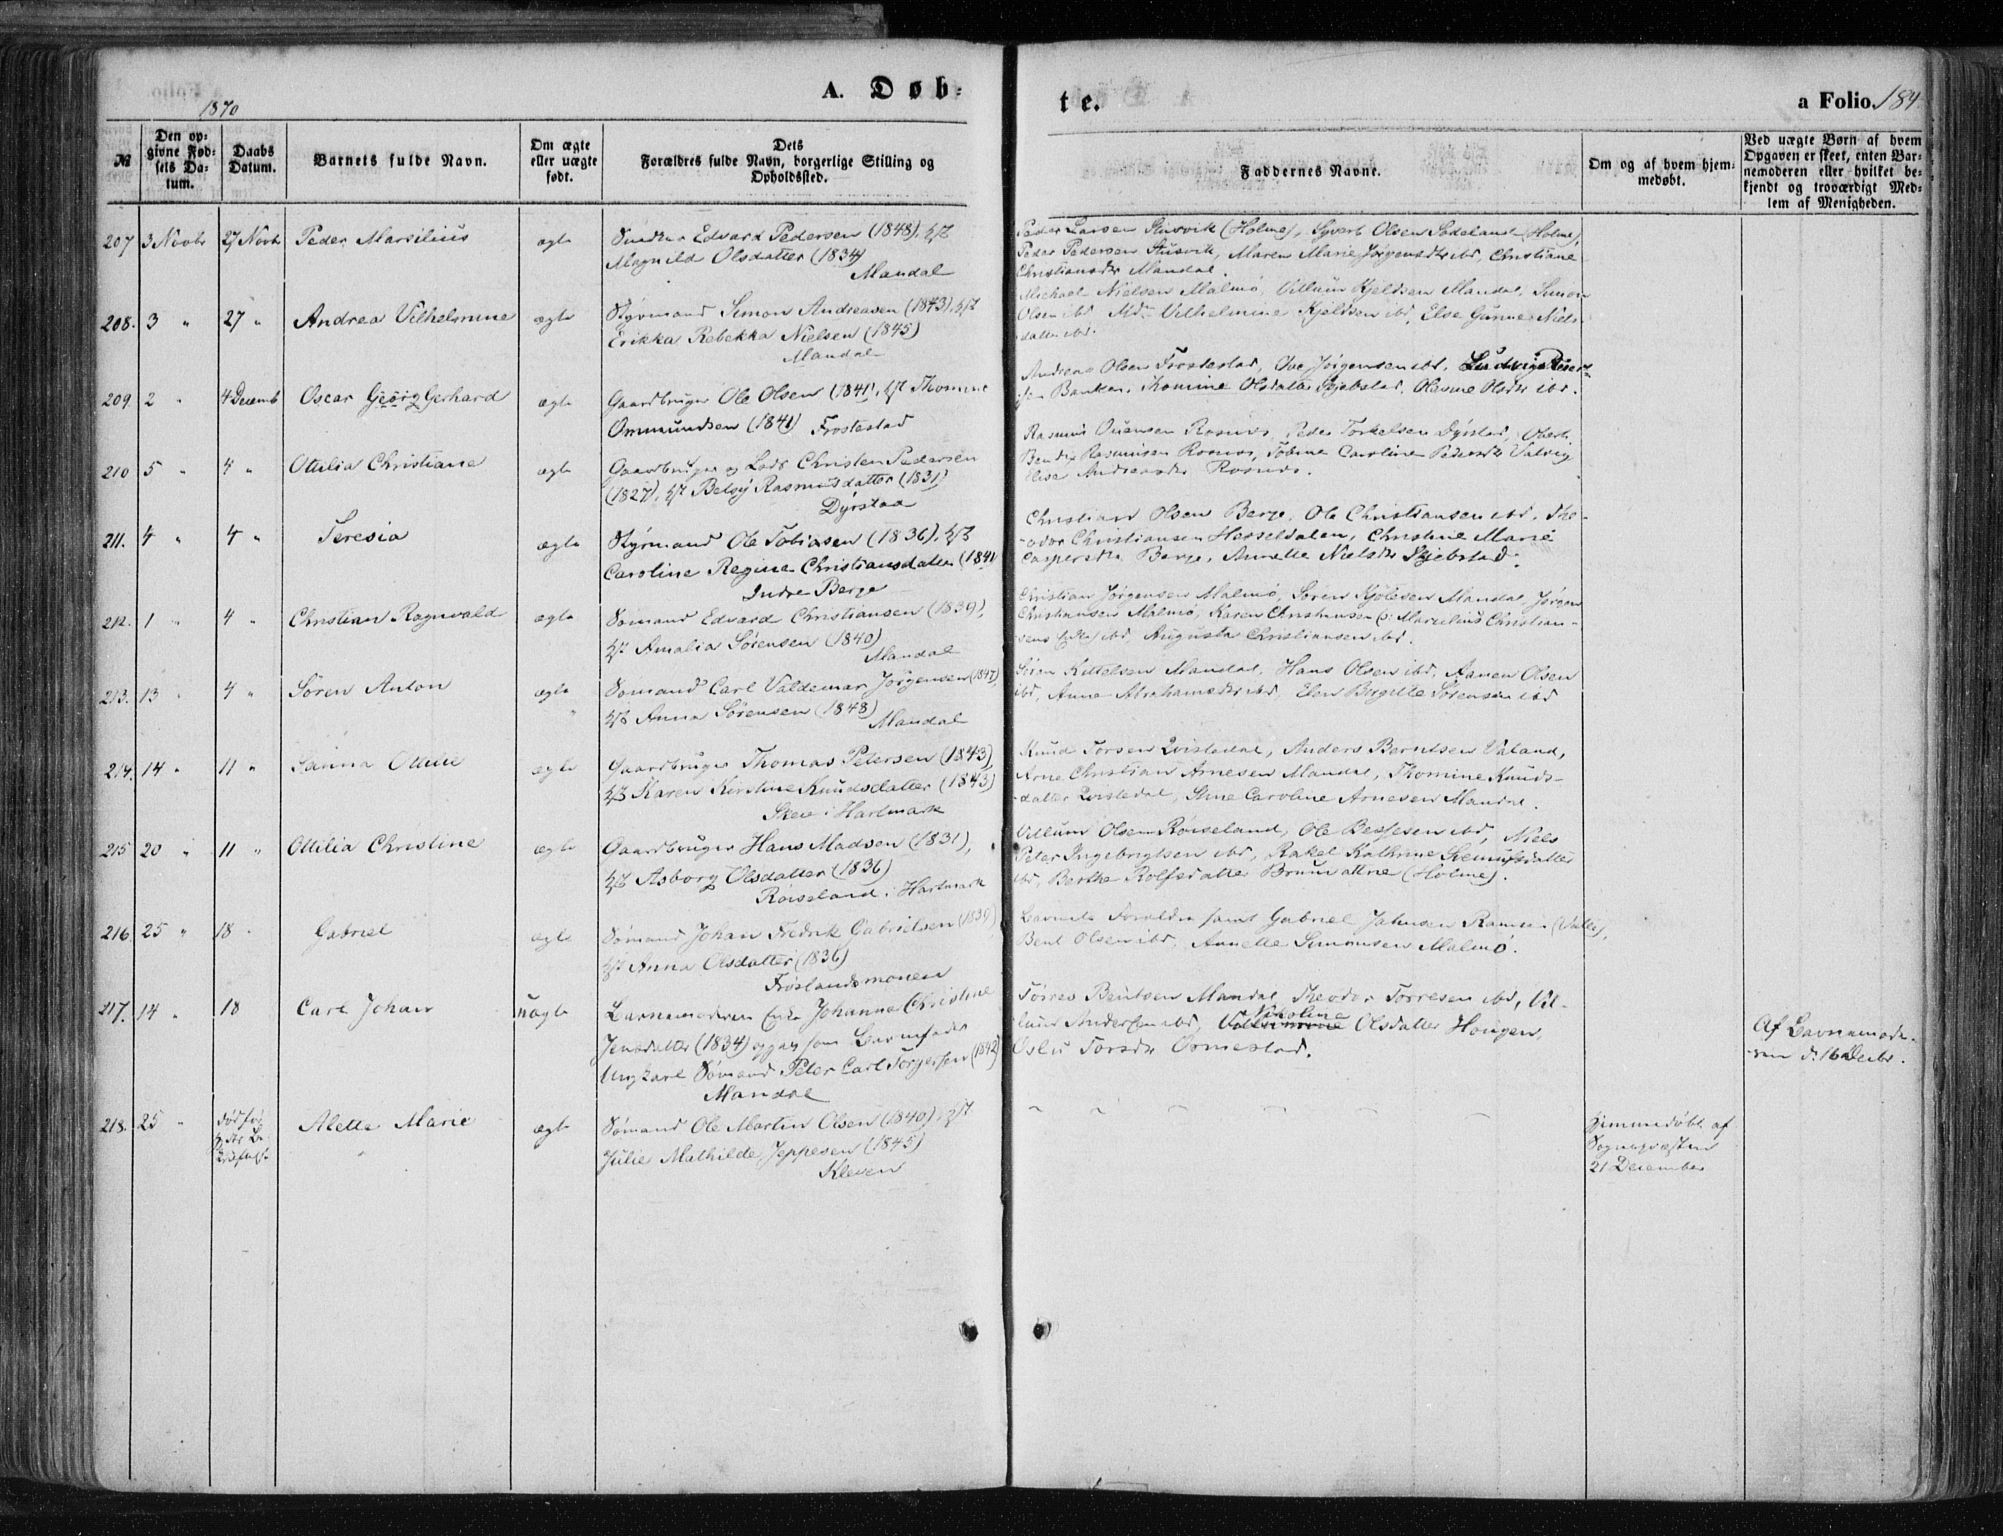 1870
A. Døb=
te.
a Folio. 184
№
Den op=
givne Fød=
sels Da=
tum.
Daabs
Datum.
Barnets fulde Navn.
Om ægte
eller uægte
født.
Dets
Forældres fulde Navn, borgerlige Stilling og
Opholdssted.
Faddernes Navne.
Om og af hvem hjem=
medøbt.
Ved uægte Børn af hvem
Opgaven er skeet, enten Bar=
nemoderen eller hvilket be=
kjendt og troværdigt Med=
lem af Menigheden.
207 3 Novbr 27 Novbr Peder Marsilius ægte
Edvard Pedersen (1848),
Magnild Olsdatter (1834)
Mandal
Peder Larsen Stusvik (Holme), Syvert Olsen (Holme),
Peder Pedersen Stusvik, Maren Marie Jørgensdtr ibd, Christiane
Christiansdtr Mandal.
208. 3 " 27 " Andrea Vilhelmine ægte
Styrmand Simon Andreasen (1843),
Erikka Rebekka Nielsen (1845)
Mandal
Michael Nielsen Malmø, Villum Kjeldsen Mandal, Simon
Olsen ibd Vilhelmine Kjeldsen ibd, Else Gunner Niels
datter ibd.
209. 2 " 4 Decemb Oscar Georg Gerhard ægte
Gaardbruger Ole Olsen (1841), Thomine
Ommundsen (1841) Frostestad
Andreas Olsen Frostestad, Ove Jørgensen ibd, Ludvig
Banken, Thomine Olsdatter Skjebstad, Olevine Olsdtr ibd.
210 5 " 4 " Ottilia Christiane ægte
Gaardbruger og Lods Christen Pedersen
(1827), Betsy Rasmusdatter (1831)
Dyrstad
Rasmus Rosnes, Peder Torkelsen Dyrstad,
Bendix Rasmussen Rosnes, Tobine Caroline Pedersdtr Valvig
Elise Andreasdtr Rosnes.
211. 4 " 4 " Teresia ægte
Styrmand Ole Tobiasen (1836),
Caroline Regine Christiansdatter (1841
Indre Berge
Christian Olsen Berge, Ole Christiansen ibd, The-
-odor Christiansen Hesseldalen, Christine Marie
Caspersdtr Berge, Annette Nielsdtr Skjebstad.
212. 1 " 4 " Christian Ragnvald ægte
Sømand Edvard Christiansen (1839),
Amalia Sørensen (1840)
Mandal
Christian Jørgensen Malmø, Søren Mandal, Jørgen
Christiansen Malmø, Karen Christiansen (: Marcelius Christian-
sens ibd, Augusta Christiansen ibd.
213. 13 " 4 " Søren Anton ægte
Sømand Carl Valdemar Jørgensen (1847),
Anna Sørensen (1848)
Mandal
Søren Kittelsen Mandal, Hans Olsen ibd, Aanen Olsen
ibd, Anne Abrahamsdtr ibd, Elen Birgitte Sørensen ibd
214. 14 " 11 " Sanna Ottilie ægte
Gaardbruger Thomas Petersen (1843),
Karen Kirstine Knudsdatter (1843)
Skeie i Hartmark
Knud Torsen Qvistedal, Anders Berntsen Valand,
Arne Christian Arnesen Mandal, Thomine Knuds-
-datter Qvistedal, Stine Caroline Arnesen Mandal.
215 20 " 11 " Ottilia Christine ægte
Gaardbruger Hans Madsen (1831),
Asborg Olsdatter (1836)
Røiseland i Hartmark
Villum Olsen Røiseland, Ole Bessesen ibd, Niels
Peter Ingebrigtsen ibd, Rakel Kathrine
ibd, Berthe Rolfsdatter Brunvattne (Holme).
216 25 " 18 " Gabriel ægte
Sømand Johan Fredrik Gabrielsen (1839)
Anna Olsdatter (1836)
Frøslandsmonen
Barnets Forældre samt Gabriel Jahnsen (Valle),
Bent Olsen ibd, Annette Simonsen Malmø.
217. 14 " 18 Carl Johan uægte
Barnemoderen Enke Johanne Christine
Jensdatter (1834) opgav som Barnefader
Ungkarl Sømand Peter Carl Torgersen (1842)
Mandal
Tørres Bentsen Mandal, Theodor Torresen ibd, Vil-
lum Andersen ibd, Nikoline Olsdatter Hougen,
Torsdtr Ormestad.
Af Barnemode-
ren d. 16 Decbr.
218. 25 " Alette Marie ægte
Sømand Ole Martin Olsen (1840),
Julie Mathilde Jeppesen (1845)
Kleven
Hjemmedøbt af
Sognepræsten
21 December